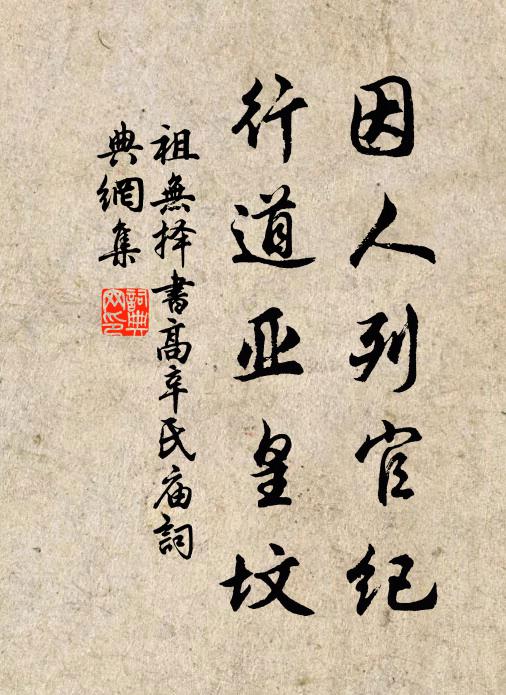 因人列官纪
行道亚皇坟
祖無择书高辛氏庙词
典網集
詞典网印